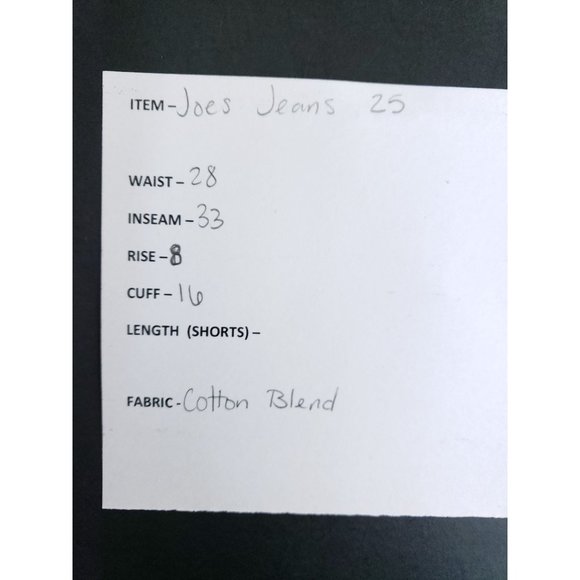 ITEM - Joes Jeans 25
WAIST - 28
INSEAM - 33
RISE - 8
CUFF - 16
LENGTH (SHORTS) -
FABRIC - Cotton Blend